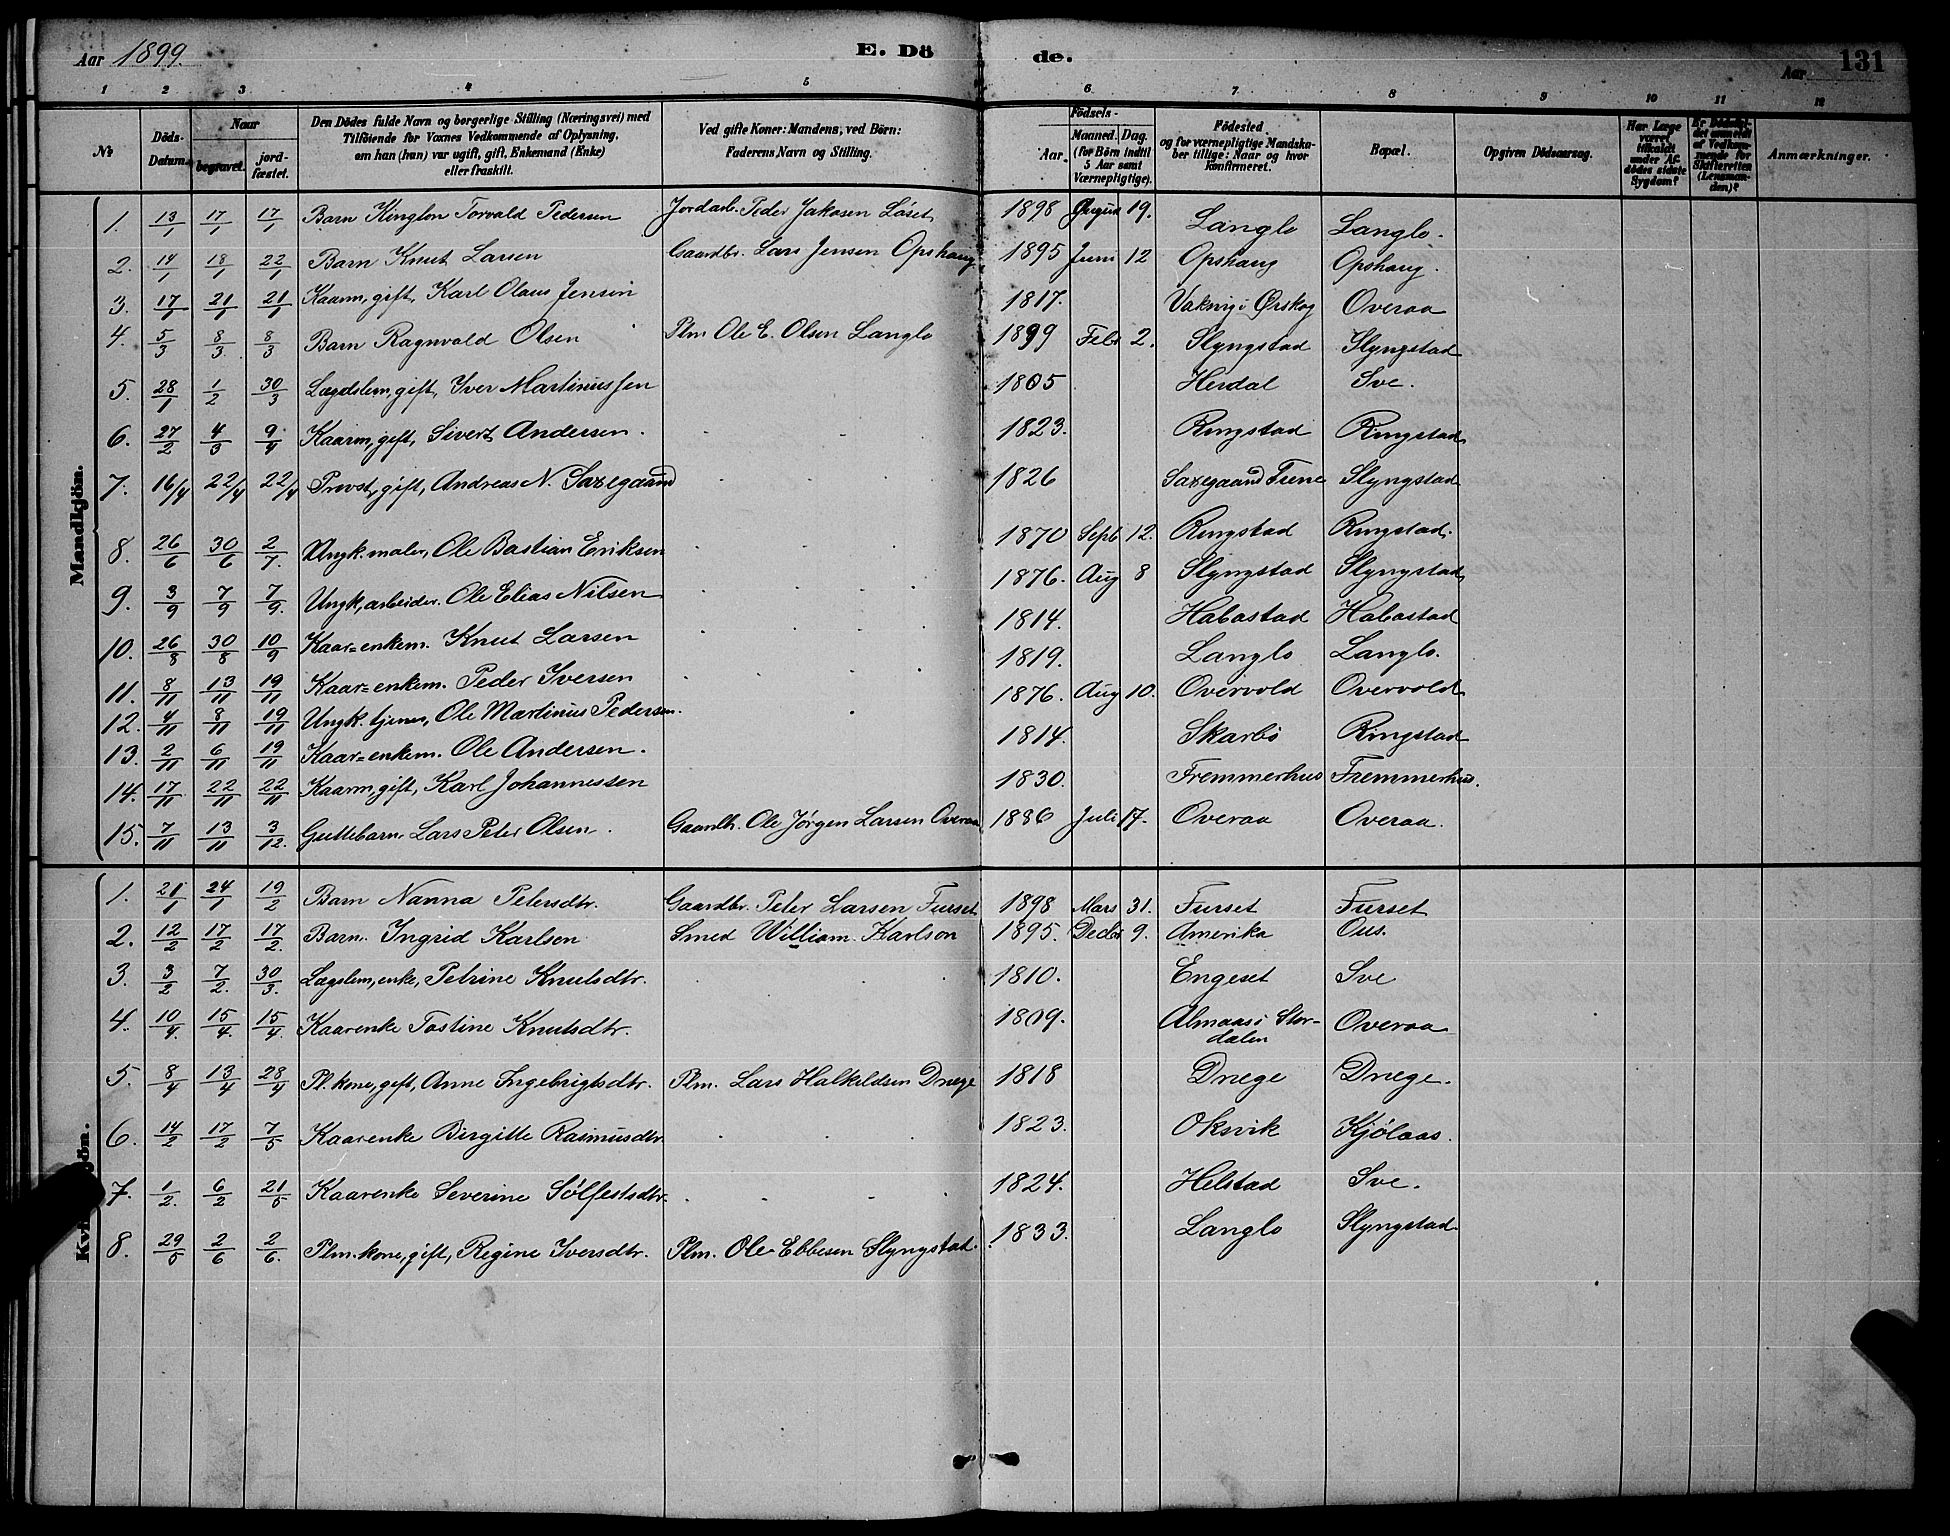 Aar 1899. E. Dö de. Aar 131
1 2 3 4 5 6 7 8 9 10 11 12
No Döds-Datum. Naar begravet. jordfæstet. Den Dödes fulde Navn og borgerlige Stilling (Næringsvei) med Tilföiende for Voxnes Vedkommende af Oplysning, om han (hun) var ugift, gift, Enkemand (Enke) eller fraskilt. Ved gifte Koner: Mandens, ved Börn: Faderens Navn og Stilling. Födsels- Aar. Maaned. Dag. (for Börn indtil 5 Aar samt Værnepligtige). Födested og for værnepligtige Mandskaber tillige: Naar og hvor konfirmeret. Bopæl. Opgiven Dödsaarsag. Har Læge været tilkaldt under Afdödes sidste Sygdom? Er Dödsfaldet anmeldt af Vedkommende for Skifteretten (Lensmanden)? Anmærkninger.
Mandkjön.
1. 13/1 17/1 17/1 Barn Kinglon Torvald Pedersen Jordarb. Peder Jakosen Löset 1898 August 19. Langlo Langlo.
2. 14/1 18/1 22/1 Barn Knut Larsen Gaardbr. Lars Jensen Opshaug 1895 Juni 12 Opshaug Opshaug.
3. 17/1 21/1 21/1 Kaarm, gift, Karl Olaus Jensen 1817. Vaksvig i Ørskog Overaa
4. 5/3 8/3 8/3 Barn Ragnvald Olsen Plm Ole E. Olsen Langlo 1899 Febr 2. Slyngstad Slyngstad
5. 28/1 1/2 30/3 Lægdslem, gift, Iver Martinussen 1805 Herdal Sve.
6. 27/2 4/3 9/4 Kaarm, gift, Sivert Andersen. 1823. Ringstad Ringstad
7. 16/4 22/4 22/4 Provst, gift, Andreas N. Saxegaard 1826 Saxegaard Trene Slyngstad
8. 26/6 30/6 2/7. Ungk. maler, Ole Bastian Eriksen 1870 Sept 12. Ringstad Ringstad.
9. 3/9 7/9 7/9. Ungk, arbeider. Ole Elias Nilsen 1876. Aug 8 Slyngstad Slyngstad
10. 26/8 30/8 10/9 Kaar=enkem. Knut Larsen 1814. Habostad Habostad
11. 8/11 13/11 19/11 Kaar=enkem. Peder Iversen 1819. Langlo Langlo.
12. 4/11 8/11 19/11 Ungk. tjener, Ole Martinus Pedersen. 1876. Aug 10. Overvold Overvold
13. 2/11 6/11 19/11 Kaar=enkem. Ole Andersen. 1814. Skarbö Ringstad
14. 17/11 22/11 22/11 Kaarm, gift, Karl Johannessen 1830. Fremmerhus Fremmerhus.
15. 7/11 13/11 3/12. Guttebarn Lars Peter Olsen. Gaardbr. Ole Jørgen Larsen Overaa 1886 Juli 17. Overaa Overaa.
Kv jön.
1. 21/1 24/1 19/2 Barn Nanna Petersdtr. Gaardbr. Peter Larsen Furset 1898 Mars 31. Furset Furset
2. 12/2 17/2 17/2. Barn. Ingrid Karlsen Smed William Karlson 1895. Decbr 9. Amerika Ous.
3. 3/2 7/2. 30/3. Lægslem, enke, Petrine Knutsdtr. 1810. Engeset Sve
4. 10/4. 15/4. 15/4. Kaarenke Tostine Knutsdtr. 1809. Almaas i Stordalen Overaa
5. 8/4 13/4 28/4 Pl. kone, gift, Anne Ingebrigtsdtr. Plm. Lars Halkildsen Drege 1818 Drege Drege.
6. 14/2 17/2 7/5 Kaarenke Birgitte Rasmusdtr. 1823. Oksvik Kjölaas.
7. 1/2. 6/2 21/5 Kaarenke Severine Sölfestsdtr. 1824. Helstad Sve.
8. 29/5 2/6 2/6. Plm. kone, gift, Regine Iversdtr. Plm. Ole Ebbesen Slyngstad. 1833. Langlo Slyngstad